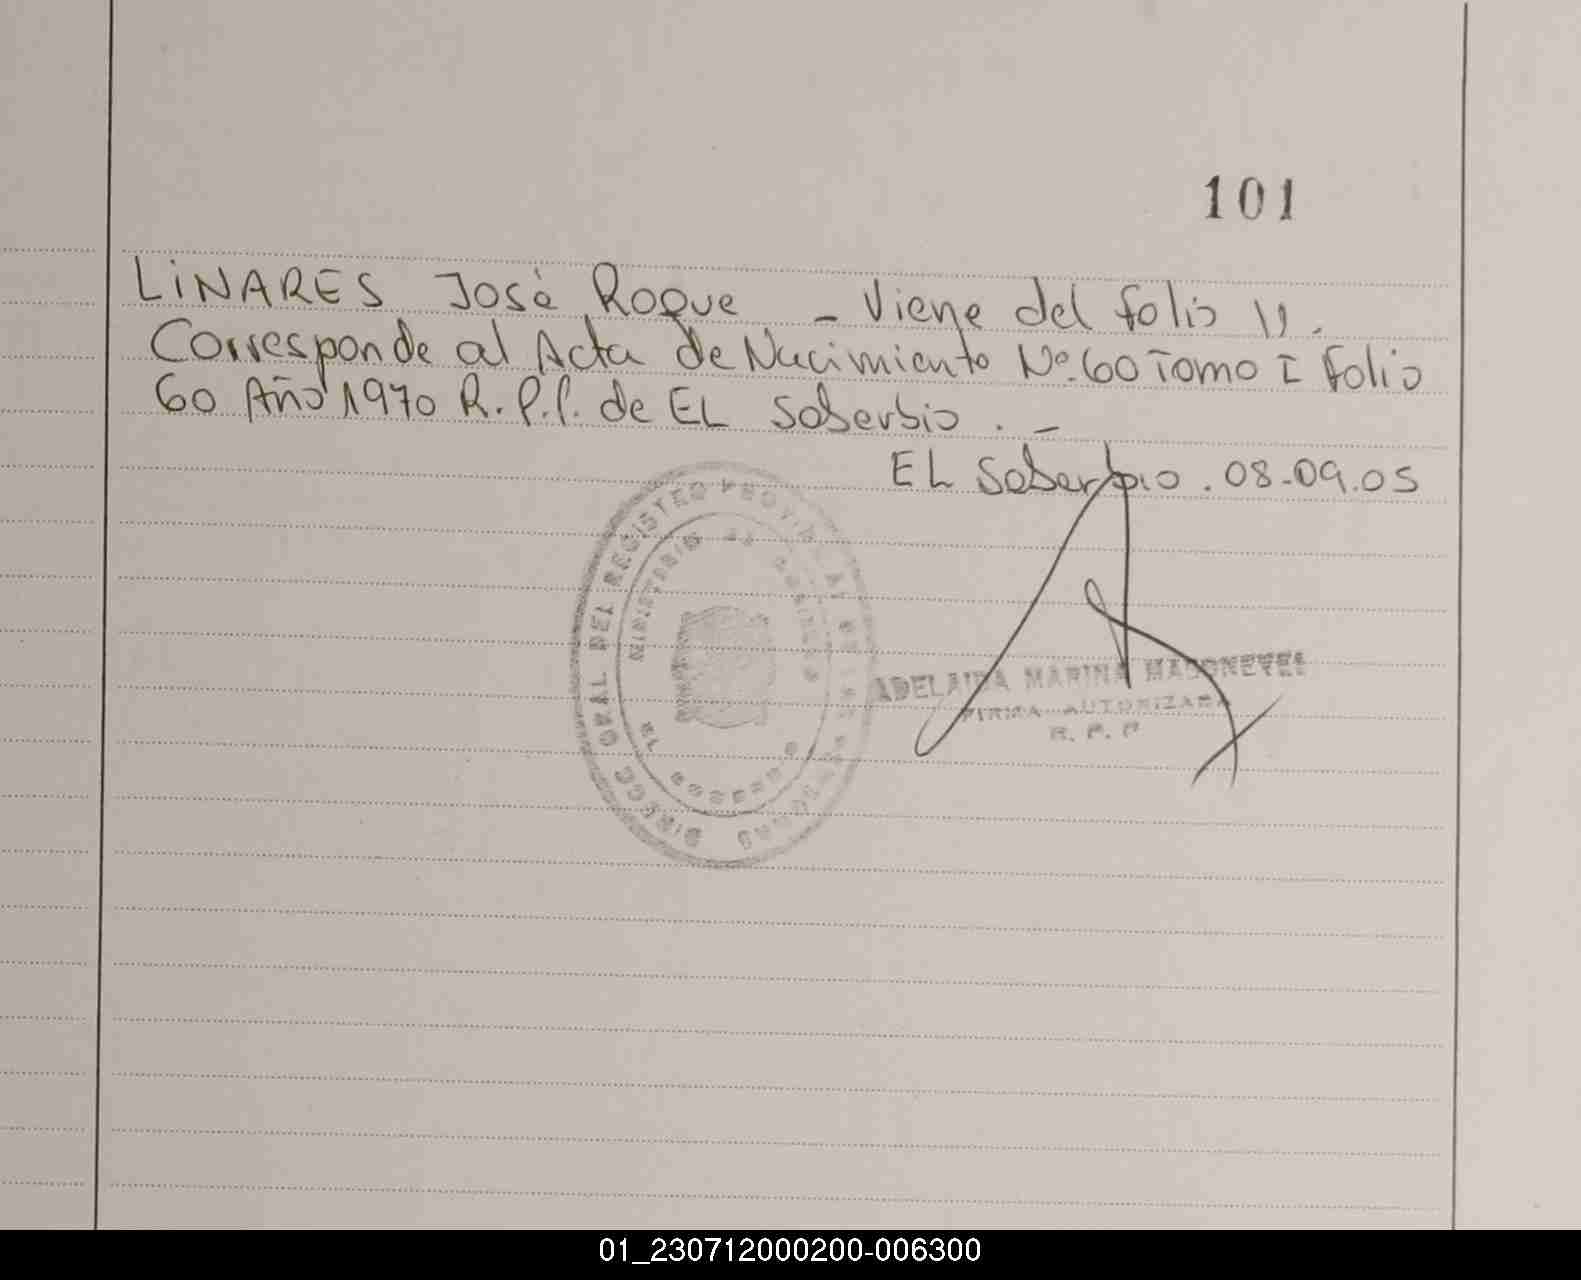 101
LINARES José Roque - Viene del folio 11.
Corresponde al Acta de Nacimiento Nº 60 Tomo I Folio
60 Año 1970 R.P.P. de EL Soberbio . -
EL Soberbio . 08-09.05
DIRECC GRAL DEL REGISTRO PROVINCIAL DE LAS PERSONAS
MINISTERIO DE GOBIERNO
EL SOBERBIO
ADELAIDA MARINA
FIRMA AUTORIZADA
R. P. P
01_230712000200-006300